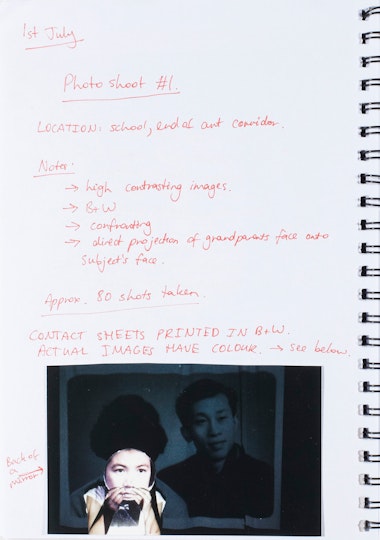 1st July
Photo shoot #1.
LOCATION: school, end of art corridor.
Notes:
→ high contrasting images.
→ B+W
→ confronting
→ direct projection of grandparents face onto
subject's face.
Approx. 80 shots taken.
CONTACT SHEETS PRINTED IN B+W.
ACTUAL IMAGES HAVE COLOUR. → see below.
Back of
a
mirror